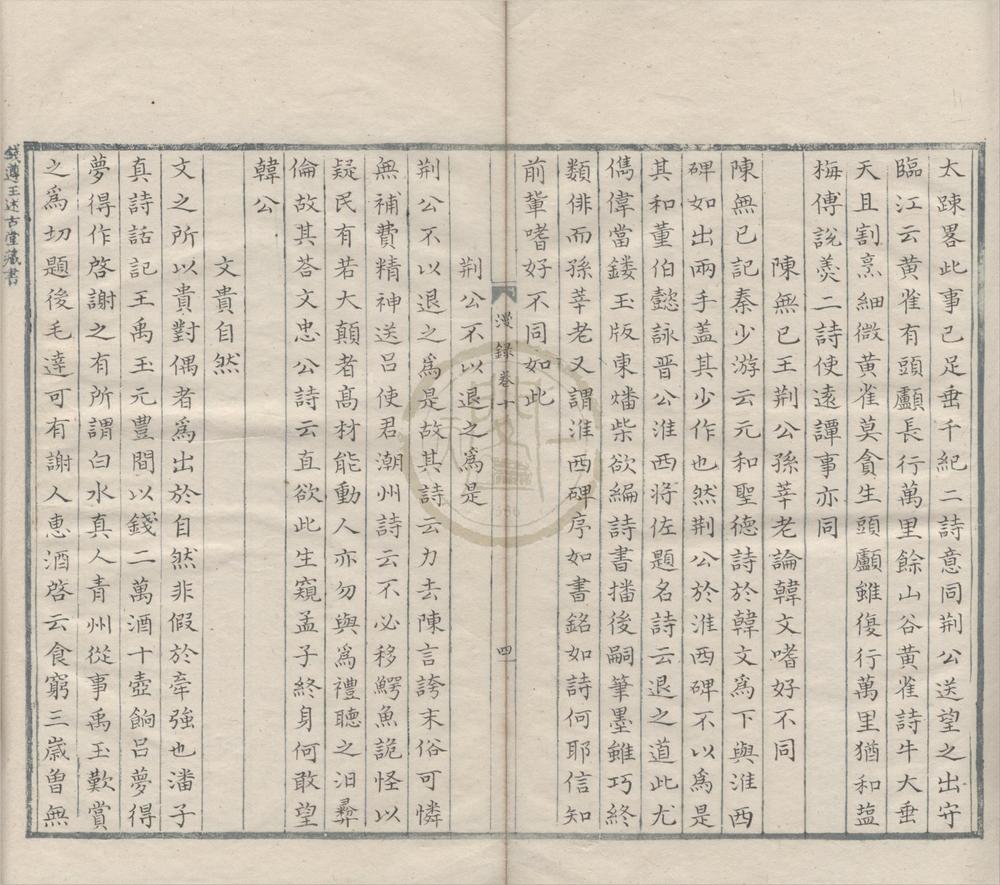 太踈畧此事已足垂千紀二詩意同荆公送望之出守
臨江云黄雀有頭顱長行萬里餘山谷黄雀詩牛大垂
天且割烹細微黄雀莫貪生頭顱雖復行萬里猶和藴
梅傅說羮二詩使遠譚事亦同
陳無已王荆公孫莘老論韓文嗜好不同
陳無已記秦少游云元和聖德詩於韓文爲下與淮西
碑如出兩手盖其少作也然荆公於淮西碑不以爲是
其和董伯懿詠晉公淮西将佐題名詩云退之道此尤
儁偉當鏤玉版東燔柴欲編詩書播後嗣筆墨雖巧終
類俳而孫莘老又謂淮西碑序如書銘如詩何耶信知
前輩嗜好不同如此
漫録卷十
四
荆公不以退之爲是
荆公不以退之爲是故其詩云力去陳言誇末俗可憐
無補費精神送吕使君潮州詩云不必移鰐魚詭怪以
疑民有若大顛者髙材能動人亦勿與爲禮聽之汨彛
倫故其荅文忠公詩云直欲此生窺孟子終身何敢望
韓公
文貴自然
文之所以貴對偶者爲出於自然非假於牽強也潘子
真詩話記王禹玉元豐間以錢二萬酒十壺餉吕夢得
夢得作啓謝之有所謂白水真人青州從事禹玉歎賞
之爲切題後毛達可有謝人恵酒啓云食窮三歲曽無
錢遵王述古堂藏書